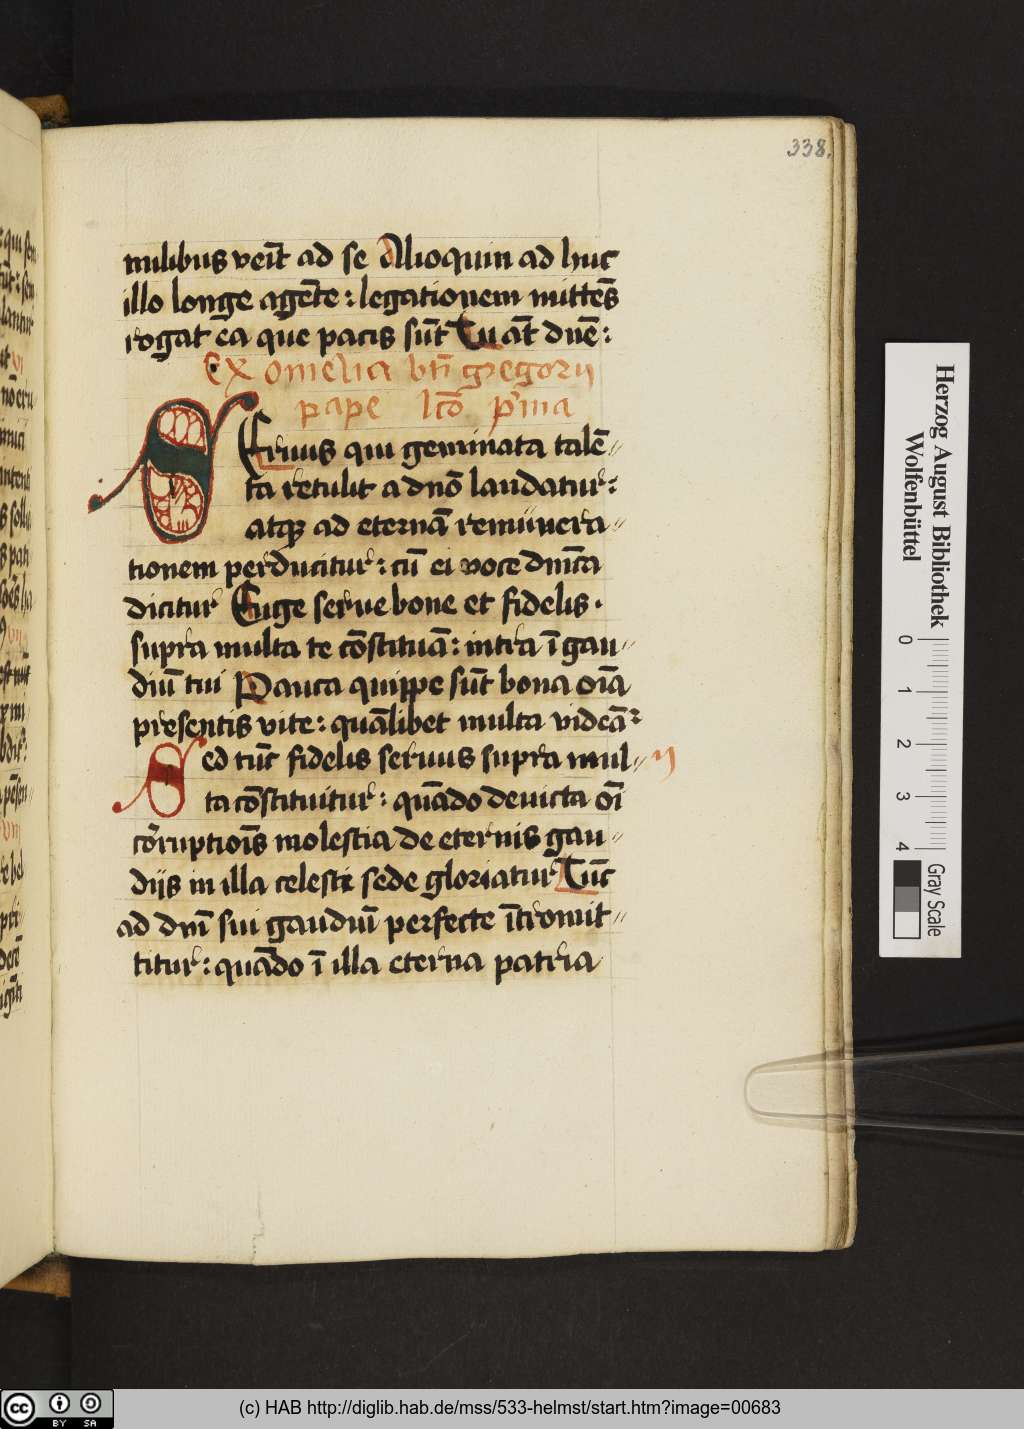 338.
milibus veit̄ ad se Alioquin ad huc
illo longe agēte : legationem mittēs
rogat ea que pacis sūt Tu aūt dnē :
Ex omelia btī gregorii
pape lcō pma
SErvus qui geminata talē〃
ta retulit a dnō laudatur :
atqꝫ ad eternā remunera〃
tionem perducitur : cū ei voce dnīca
dicitur Euge serue bone et fidelis ·
supra multa te cōstituā : intra ī gau〃
diū tui Pauca quippe sūt bona oīa
presentis vite : quālibet multa videā
Sed tūc fidelis seruus supra mul〃 ij
ta cōstituitur : quādo deuicta oī
corruptiōis molestia de eternis gau〃
dijs in illa celesti sede gloriatur Tūc
ad dnī sui gaudiū perfecte ītromit〃
titur : quādo ī illa eterna patria
Herzog August Bibliothek
Wolfenbüttel
0 1 2 3 4
Gray Scale
cc BY SA
(c) HAB http://diglib.hab.de/mss/533-helmst/start.htm?image=00683